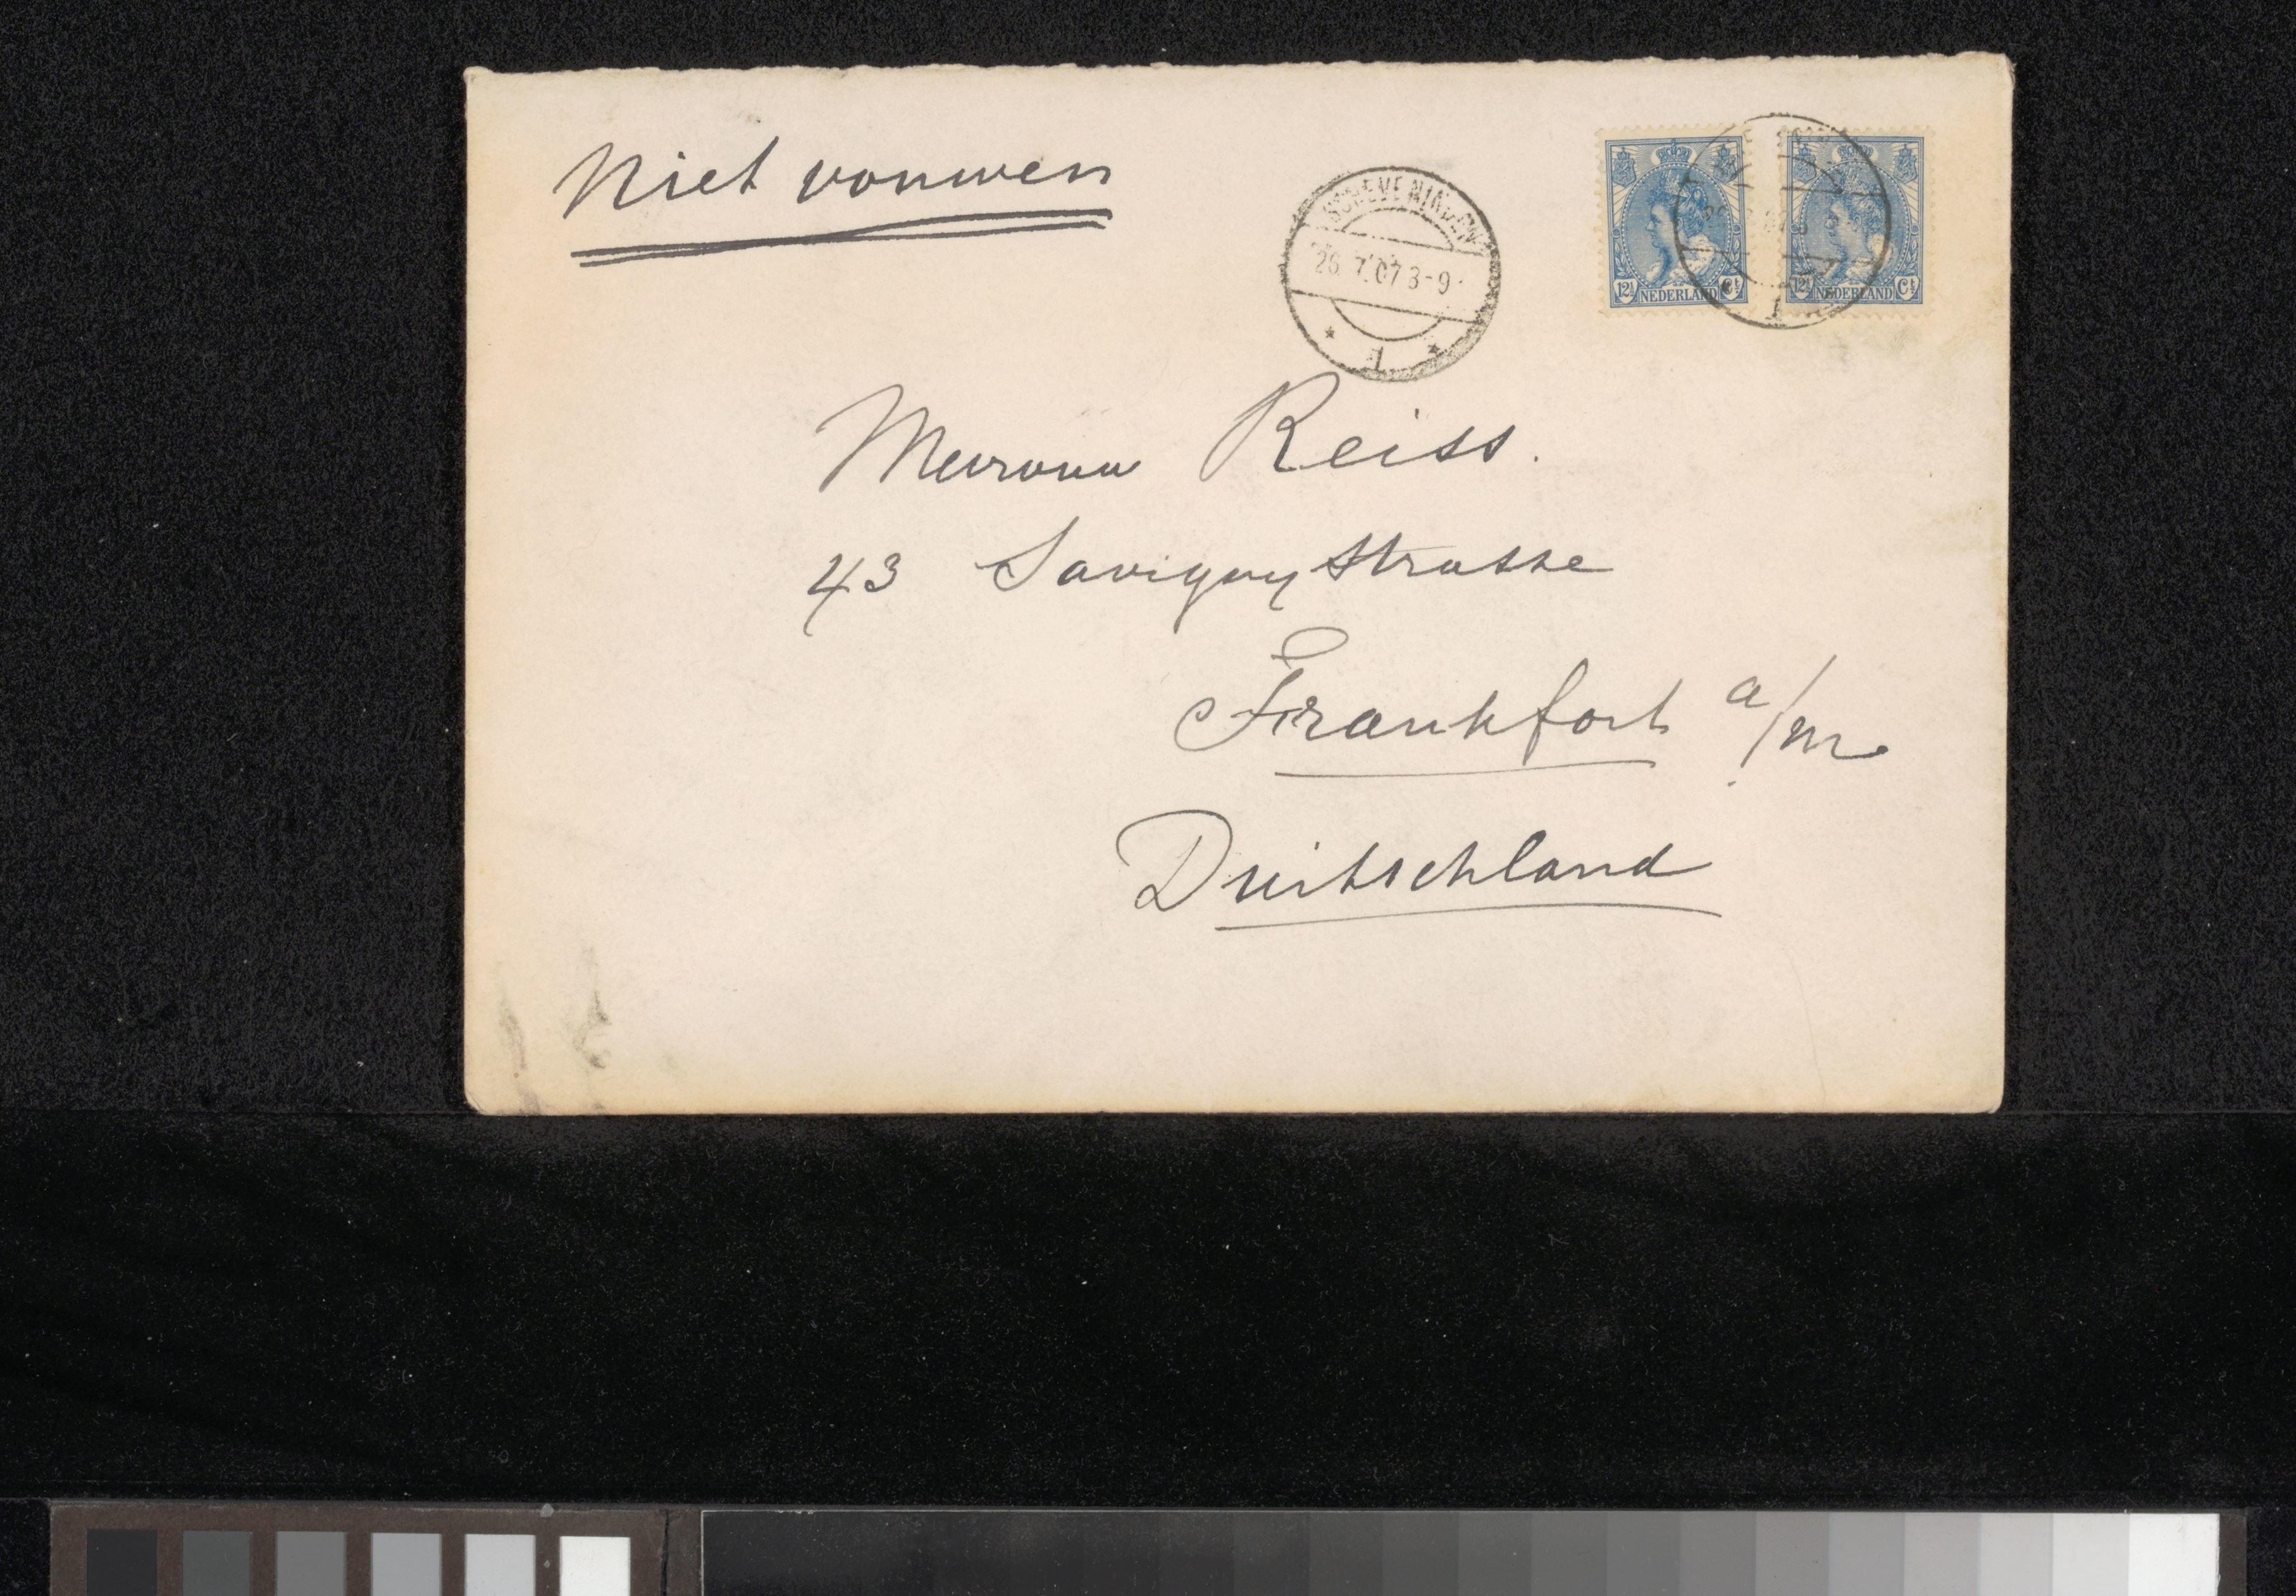 Niet vouwen
SCHEVENINGEN
26.7.07 8-9
1
12½ NEDERLAND Ct
12½ NEDERLAND Ct
1
Mevrouw Reiss.
43 Savigny Strasse
Frankfort a/m
Duitschland